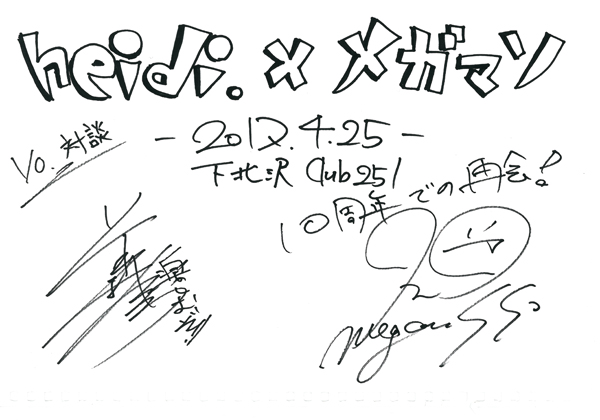 heidi. × メガマソ
Vo. 対談
- 2012.4.25 -
下北沢 Club251
10周年での再会!
義
megamasso